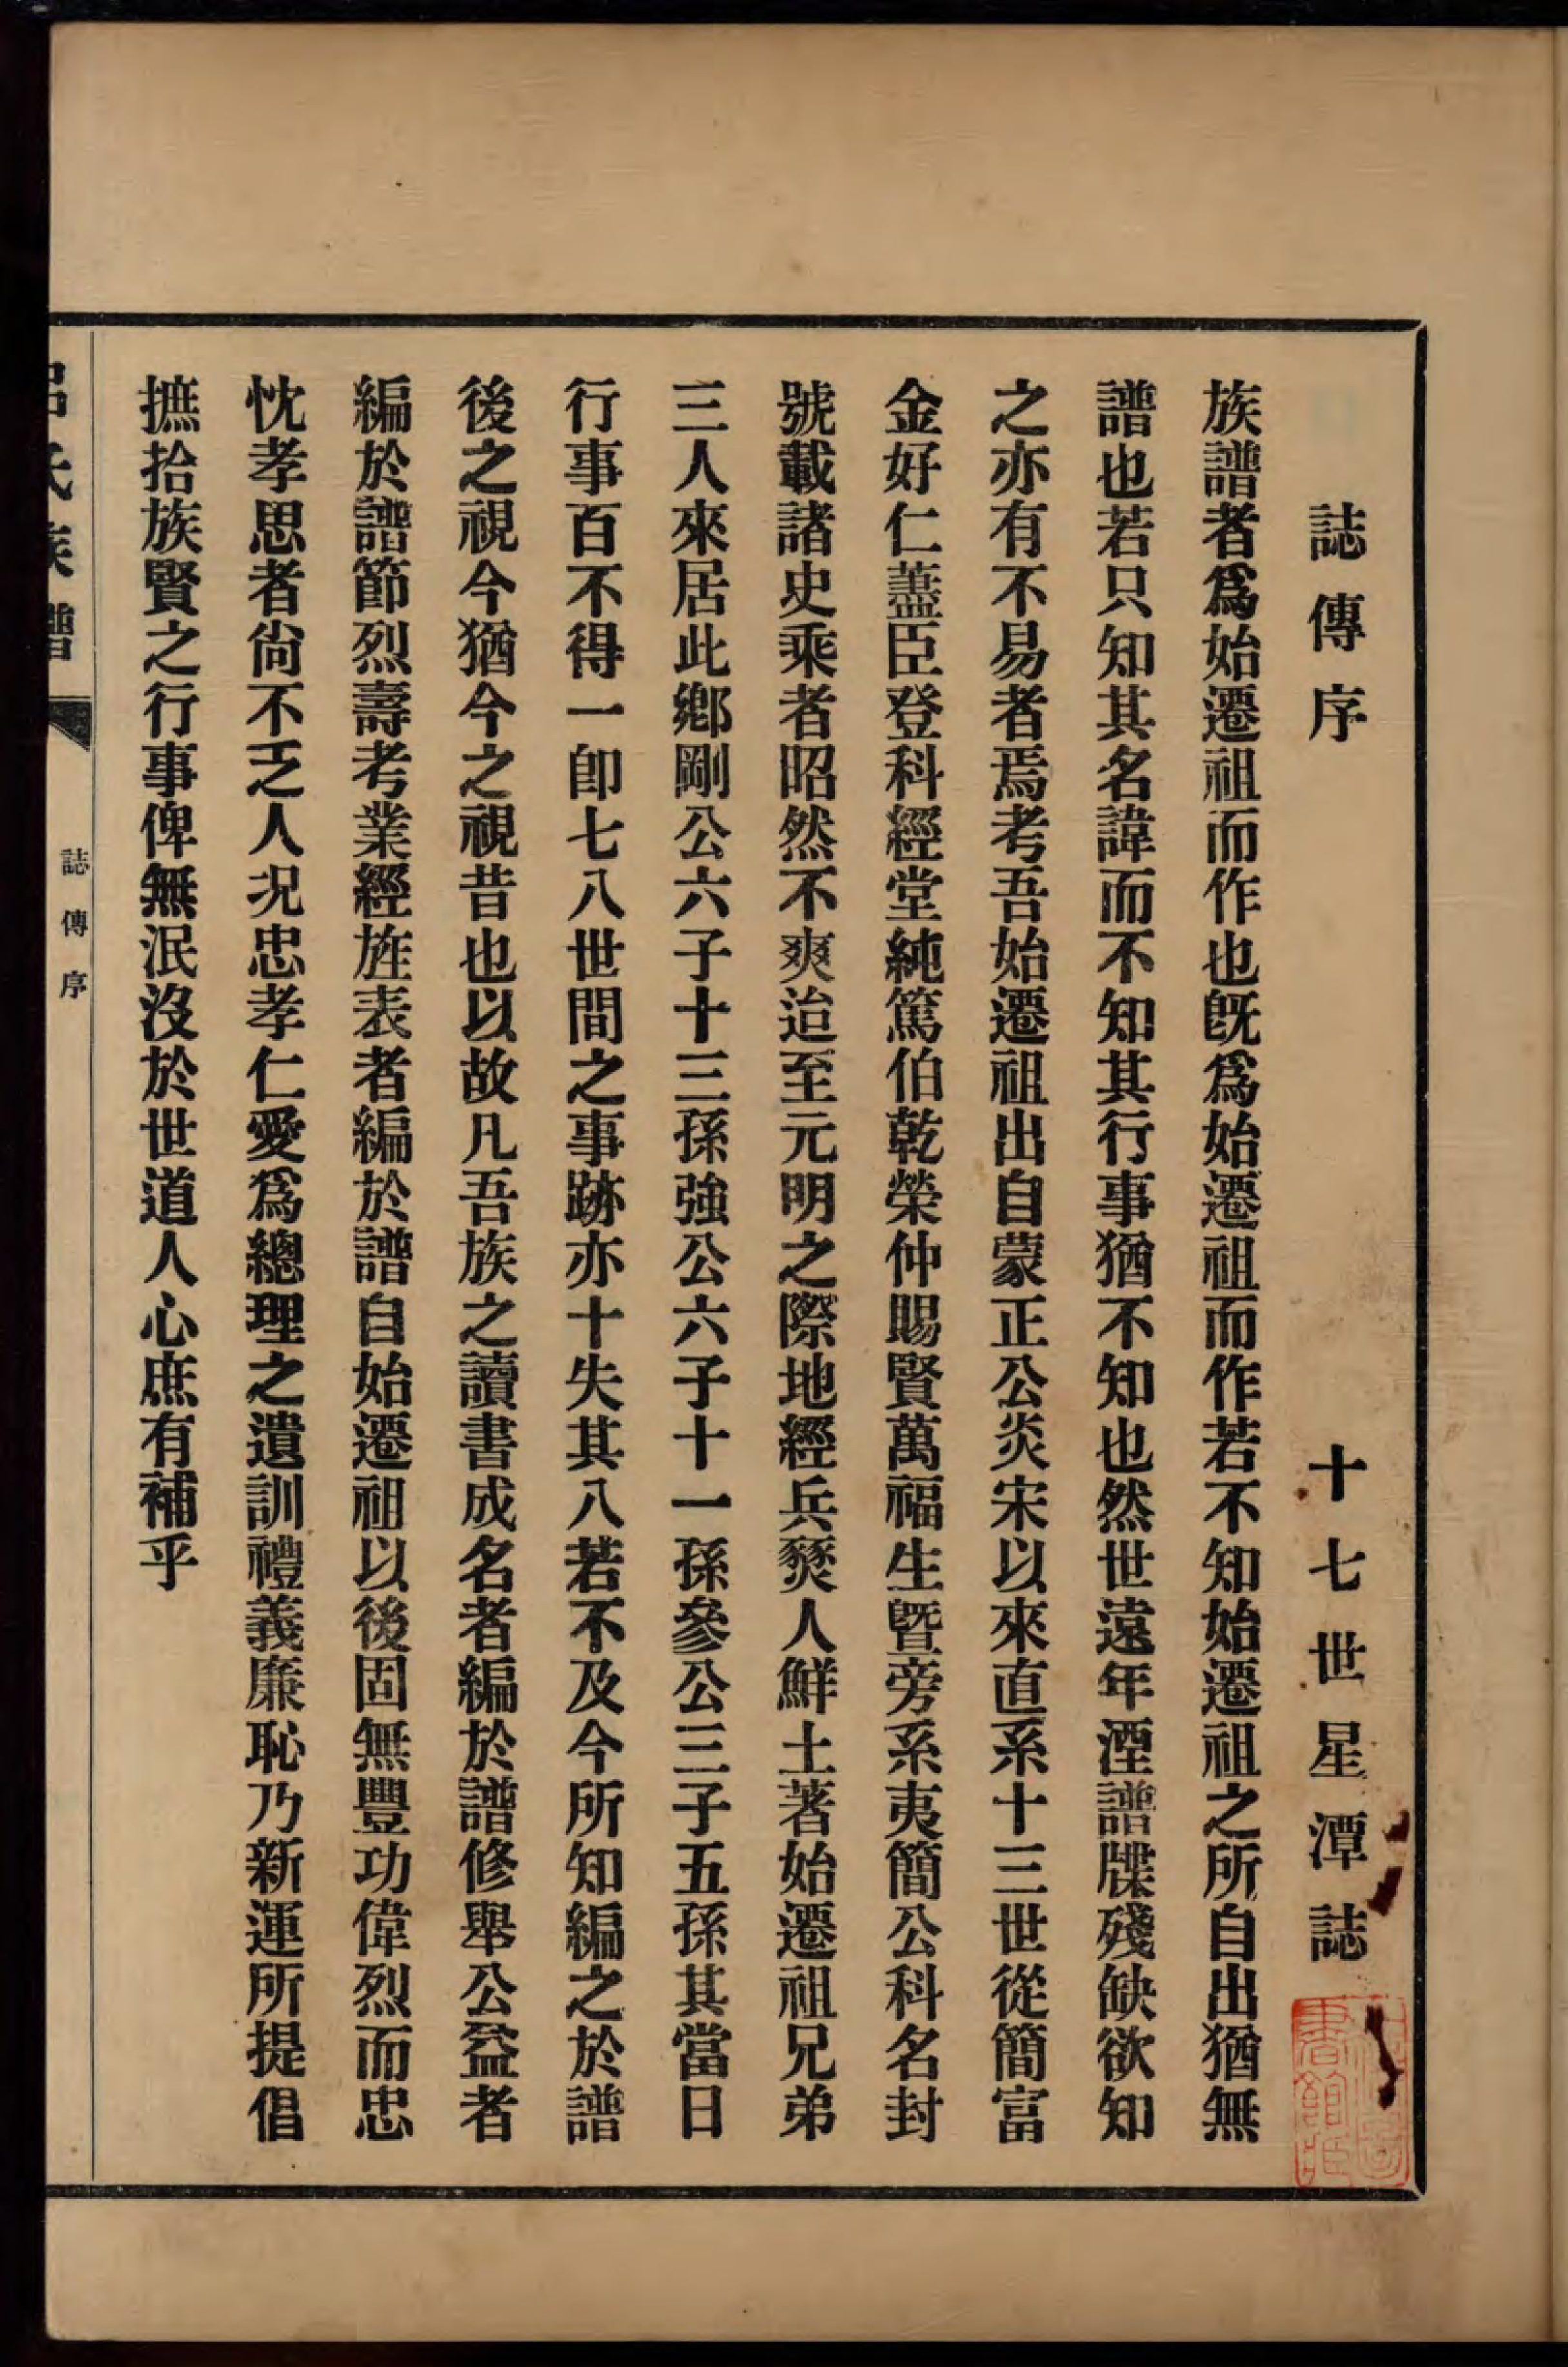 誌傳序　十七世星潭誌
族譜者爲始遷祖而作也旣爲始遷祖而作若不知始遷祖之所自出猶無
譜也若只知其名諱而不知其行事猶不知也然世遠年湮譜牒殘缺欲知
之亦有不易者焉考吾始遷祖出自蒙正公炎宋以來直系十三世從簡富
金好仁藎臣登科經堂純篤伯乾榮仲賜賢萬福生曁旁系夷簡公科名封
號載諸史乘者昭然不爽迨至元明之際地經兵燹人鮮土著始遷祖兄弟
三人來居此鄕剛公六子十三孫強公六子十一孫參公三子五孫其當日
行事百不得一卽七八世間之事跡亦十失其八若不及今所知編之於譜
後之視今猶今之視昔也以故凡吾族之讀書成名者編於譜修舉公益者
編於譜節烈壽考業經旌表者編於譜自始遷祖以後固無豐功偉烈而忠
忱孝思者尙不乏人况忠孝仁愛爲總理之遺訓禮義廉恥乃新運所提倡
摭拾族賢之行事俾無泯沒於世道人心庶有補乎
呂氏族譜
誌傳序